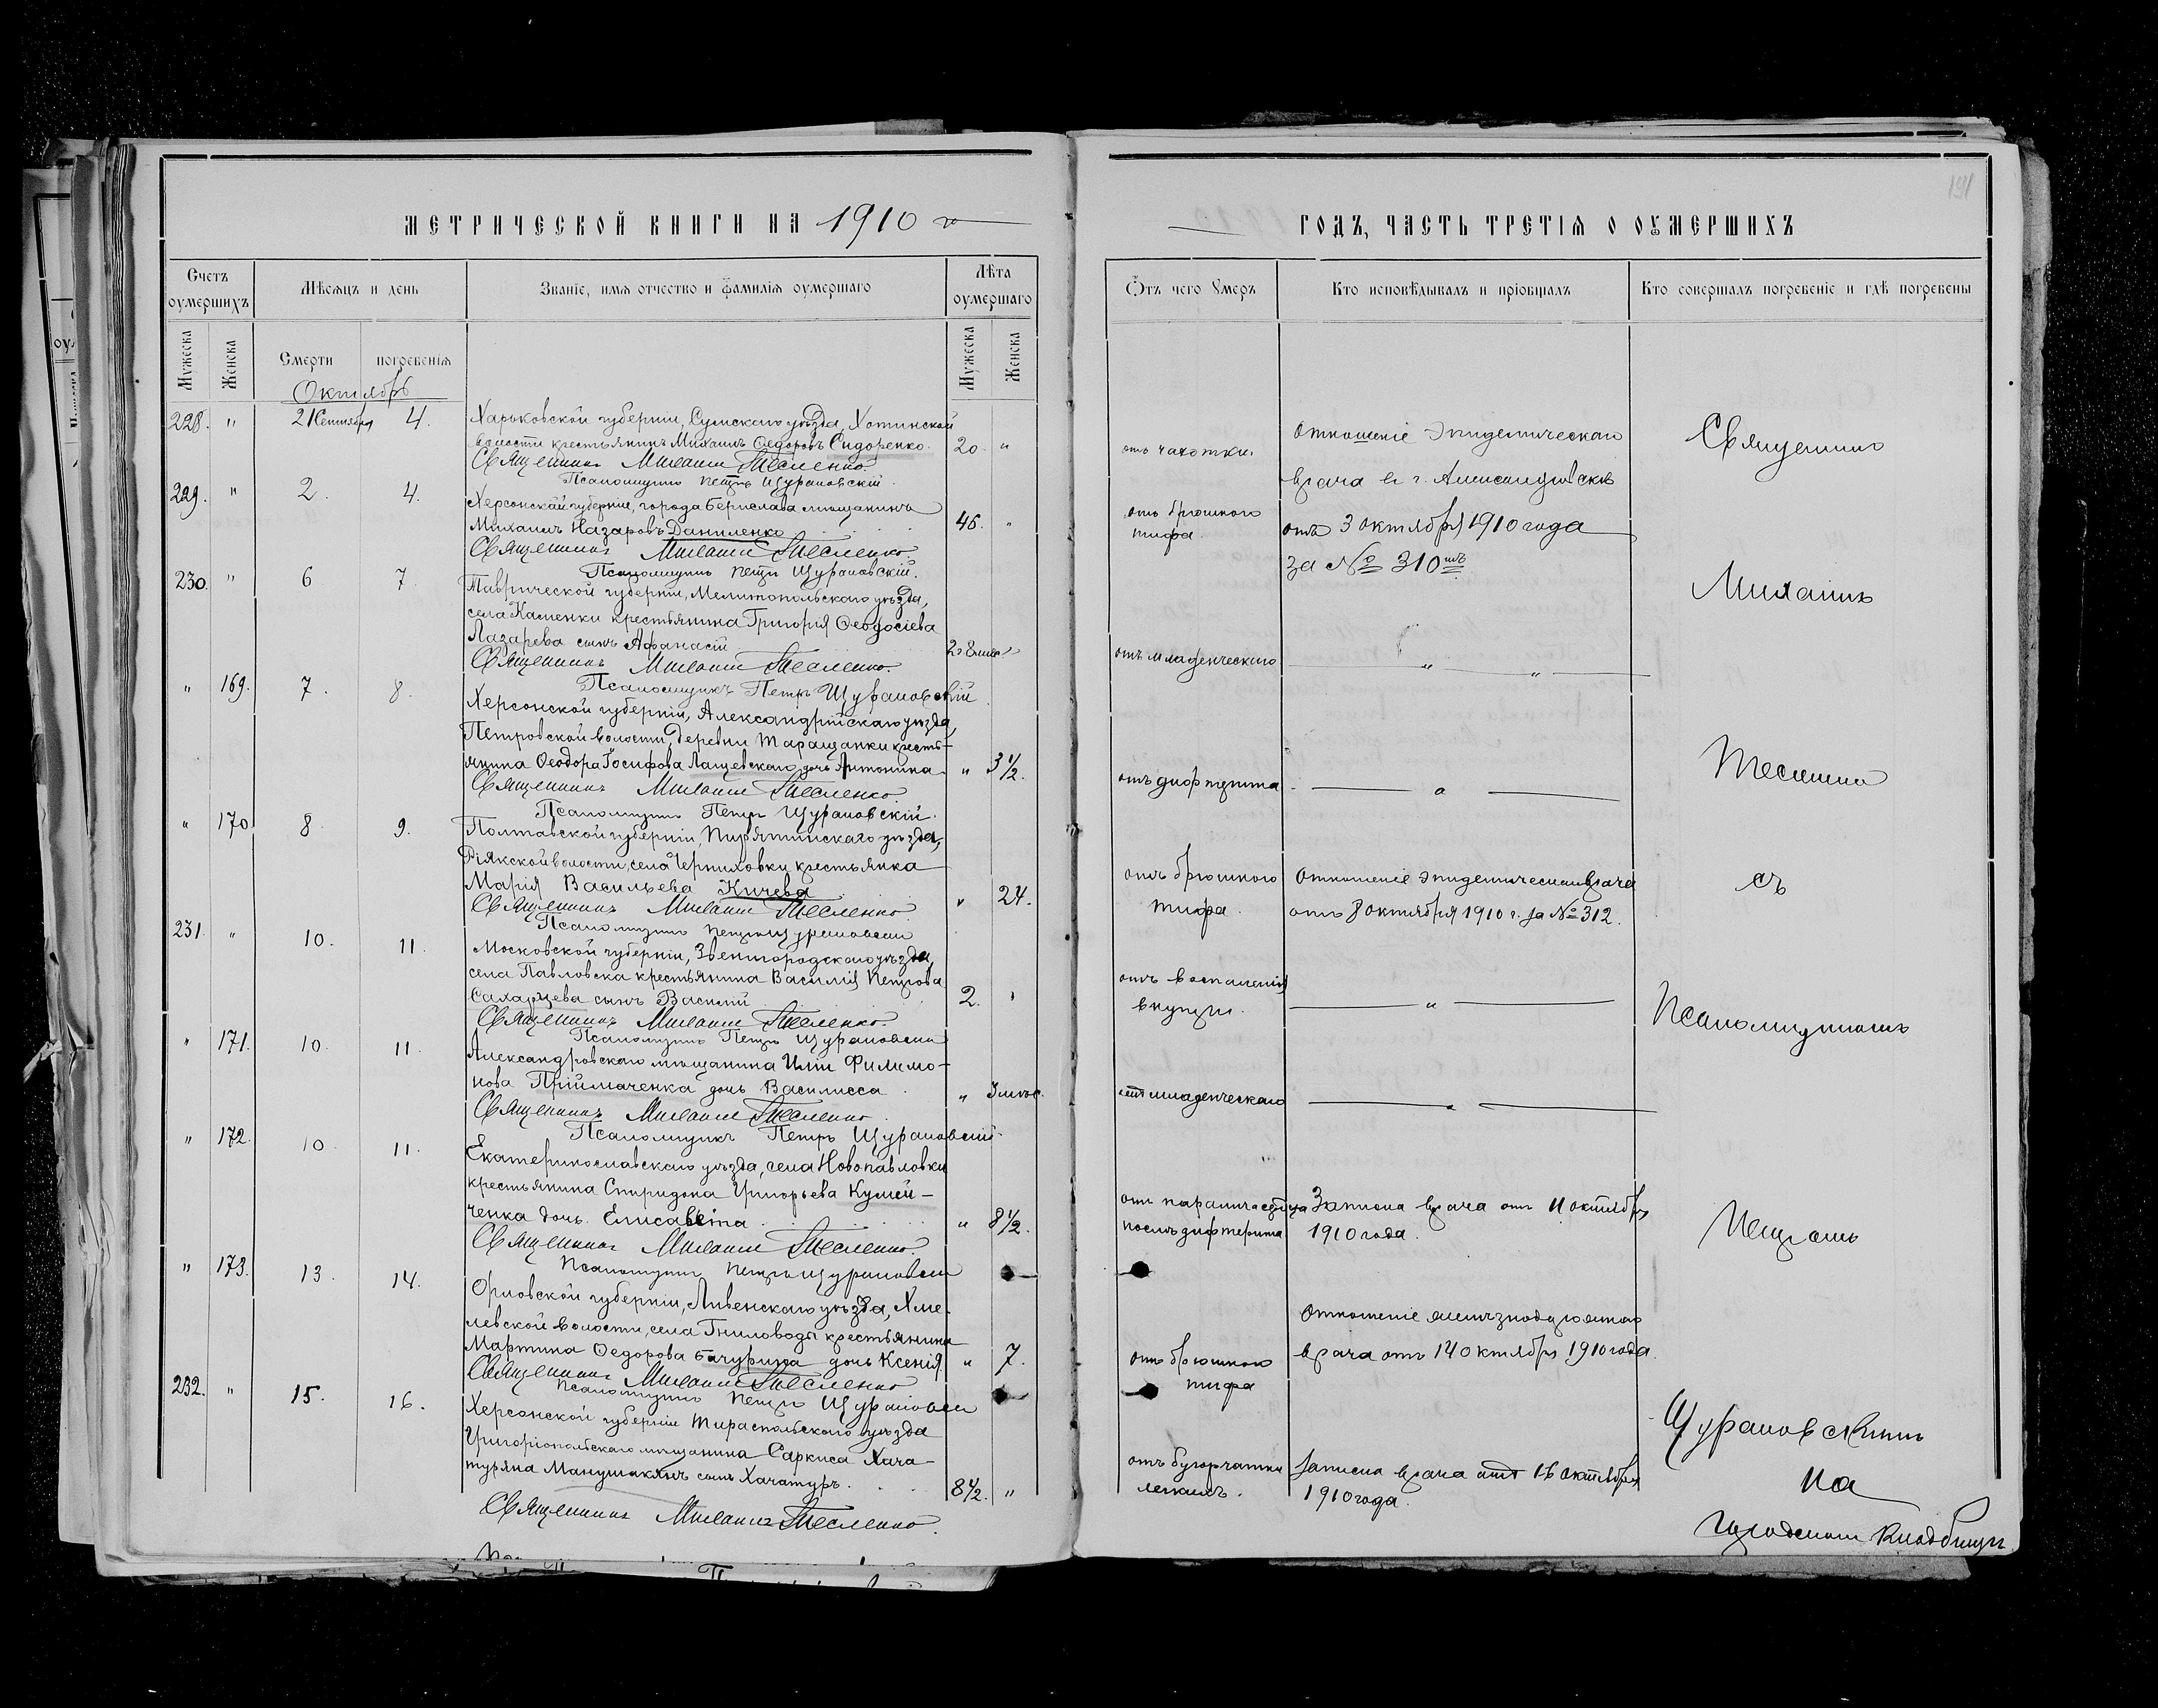 МЕТРИЧЕСКОЙ КНИГИ НА 1910 го
Счетъ оумершихъ
Мѣсяцъ и день
Званіе, имя отчество и фамилія оумершаго
Лѣта оумершаго
Мужеска
Женска
Смерти
погребенія
Мужеска
Женска
Октябрь
228. " 21 Сентября 4. Харьковской губерніи, Сумскаго уѣзда, Хотинской
волости крестьянинъ Михаилъ Ѳедоровъ Сидоренко. 20. "
Священникъ Михаилъ Тесленко.
Псаломщикъ Петръ Щурановскій.
229. " 2. 4. Херсонской губерніи, города Берислава мѣщанинъ
Михаилъ Назаровъ Даниленко 46. "
Священникъ Михаилъ Тесленко.
Псаломщикъ Петръ Щурановскій.
230. " 6 7. Таврической губерніи, Мелитопольскаго уѣзда,
села Каменки крестьянина Григорія Ѳеодосіева
Лазарева сынъ Афанасій 2 г 8 мѣс "
Священникъ Михаилъ Тесленко.
Псаломщикъ Петръ Щурановскій
" 169. 7. 8. Херсонской губерніи, Александрійскаго уѣзда,
Петровской волости, деревни Таращанки кресть-
янина Ѳеодора Іосифова Лащевскаго дочь Антонина " 3 1/2.
Священникъ Михаилъ Тесленко.
Псаломщикъ Петръ Щурановскій.
" 170 8. 9. Полтавской губерніи, Пирятинскаго уѣзда,
волости, села крестьянка
Марія Васильева Кичева " 24.
Священникъ Михаилъ Тесленко
Псаломщикъ Петръ Щурановскій
231. " 10. 11. Московской губерніи, Звенигородскаго уѣзда,
села Павловска крестьянина Василія Петрова
Сахарцева сынъ Василій 2. "
Священникъ Михаилъ Тесленко.
Псаломщикъ Петръ Щурановскій
" 171. 10. 11. Александровскаго мѣщанина Иліи Филимо-
нова Пріймаченка дочь Василисса " 3 мѣс.
Священникъ Михаилъ Тесленко.
Псаломщикъ Петръ Щурановскій
" 172. 10. 11. Екатеринославскаго уѣзда, села Новопавловки
крестьянина Спиридона Григорьева
ченка дочь Елисавета " 8 1/2.
Священникъ Михаилъ Тесленко.
Псаломщикъ Петръ Щурановскій
" 173. 13. 14. Орловской губерніи, Ливенскаго уѣзда,
волости, села крестьянина
Мартина Ѳедорова Бачурина дочь Ксенія " 7.
Священникъ Михаилъ Тесленко
Псаломщикъ Петръ Щурановскій
232. " 15. 16. Херсонской губерніи Тираспольскаго уѣзда
Григоріопольскаго мѣщанина Саркиса Хача-
туряна Манушакянъ сынъ Хачатуръ. 8 1/2. "
Священникъ Михаилъ Тесленко.
191
ГОДЪ, ЧАСТЬ ТРЕТІЯ О ОУМЕРШИХЪ
Ѿтъ чего Умеръ
Кто исповѣдывалъ и пріобщалъ
Кто совершалъ погребеніе и гдѣ погребены
отъ чахотки.
Отношеніе Эпидемическаго
врача въ г. Александровскѣ
отъ брюшного
тифа.
отъ 3 октября 1910 года
за № 310мъ
отъ младенческаго
отъ дифтерита
отъ брюшного
тифа.
Отношеніе эпидемическ врача
отъ 8 октября 1910 г. за № 312.
отъ воспаленія
отъ младенческаго
послѣ дифтерита
Записка врача отъ 11 октября
1910 года.
отъ брюшного
тифа
Отношеніе
врача отъ 14 октября 1910 года.
отъ бугорчатки
легкихъ.
Записка врача отъ 16 октября
1910 года.
Священникъ
Михаилъ
Тесленко
съ
Псаломщикомъ
Петромъ
Щурановскимъ
на
городскомъ кладбищѣ